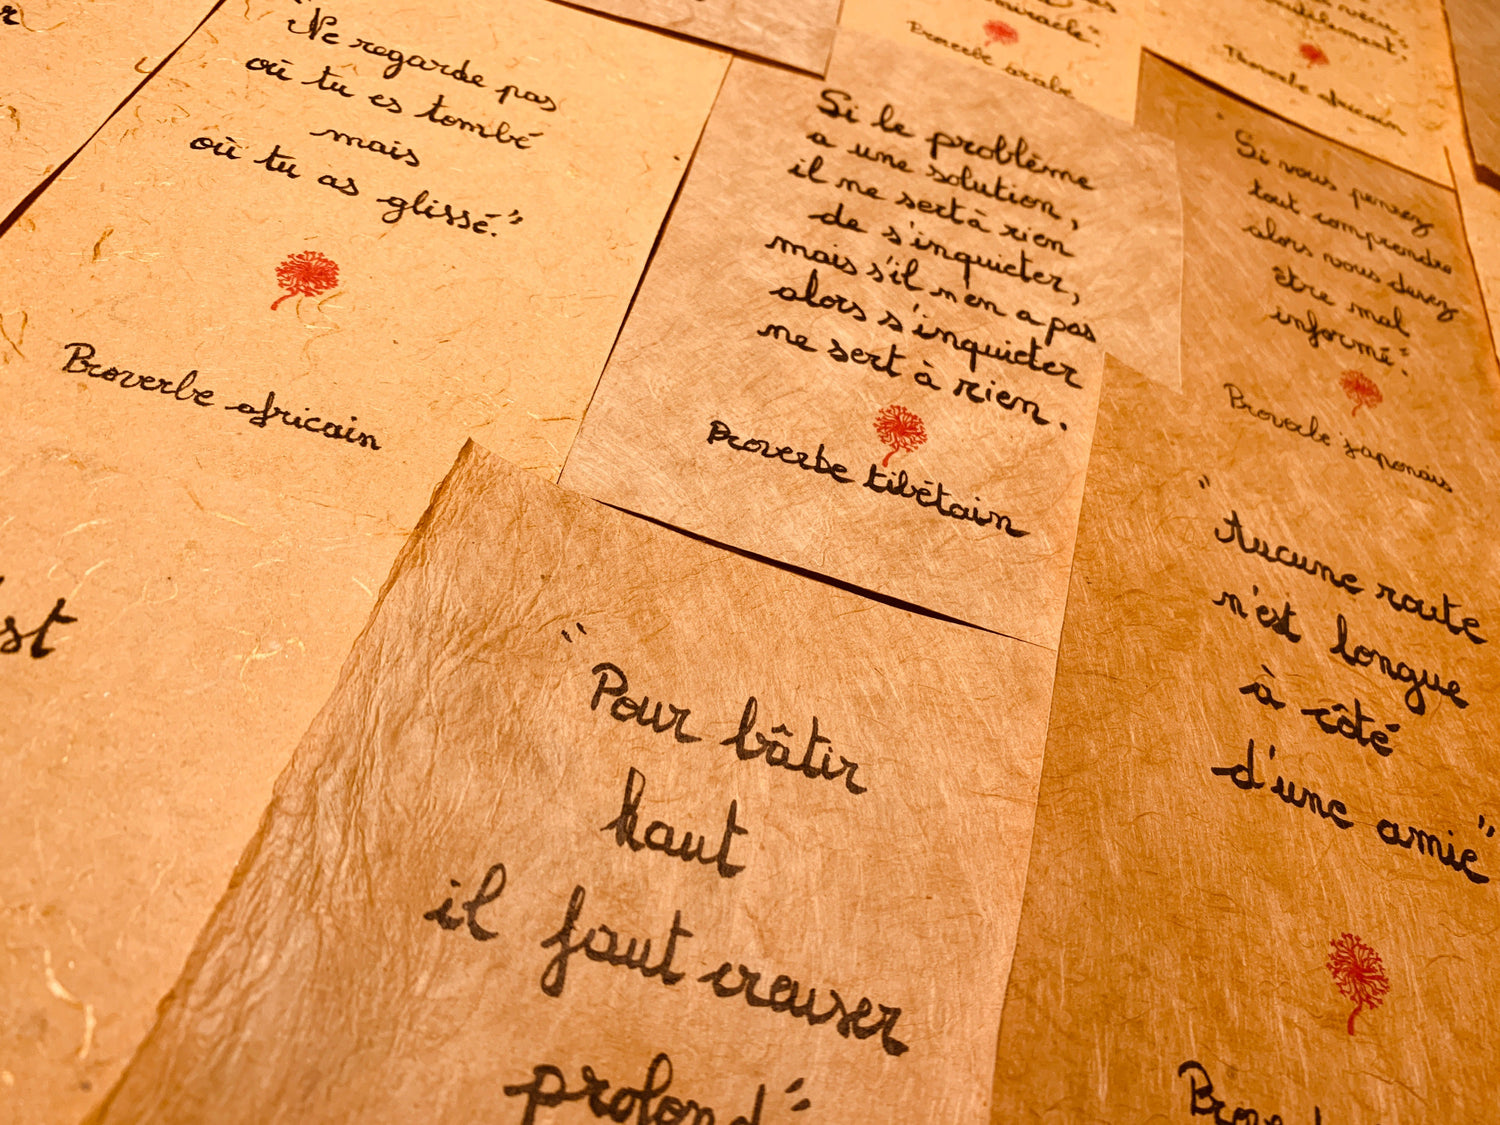 "Ne regarde pas
où tu es tombé
mais
où tu as glissé."
Proverbe africain
miracle".
Proverbe arabe
Proverbe africain
Si le problème
a une solution,
il ne sert à rien
de s'inquieter,
mais s'il n'en a pas
alors s'inquieter
ne sert à rien.
Proverbe tibétain
"Si vous pensez
tout comprendre
alors vous devez
être mal
informé".
Proverbe japonais
"Aucune route
n'est longue
à côté
d'une amie"
"Pour bâtir
haut
il faut creuser
profond"